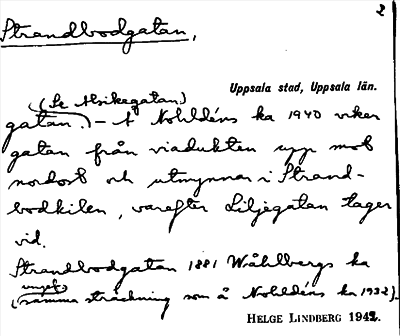 2
Strandbodgatan,
Uppsala stad, Uppsala län.
(Se Alsikegatan)
gatan.) – Å Nohldéns ka 1940 viker
gatan från viadukten upp mot
nordost och utmynnar i Strand-
bodkilen, varefter Liljegatan tager
vid.
Strandbodgatan 1881 Wåhlbergs ka
ungef.
(samma sträckning som å Nohldéns ka 1932).
HELGE LINDBERG 1942.